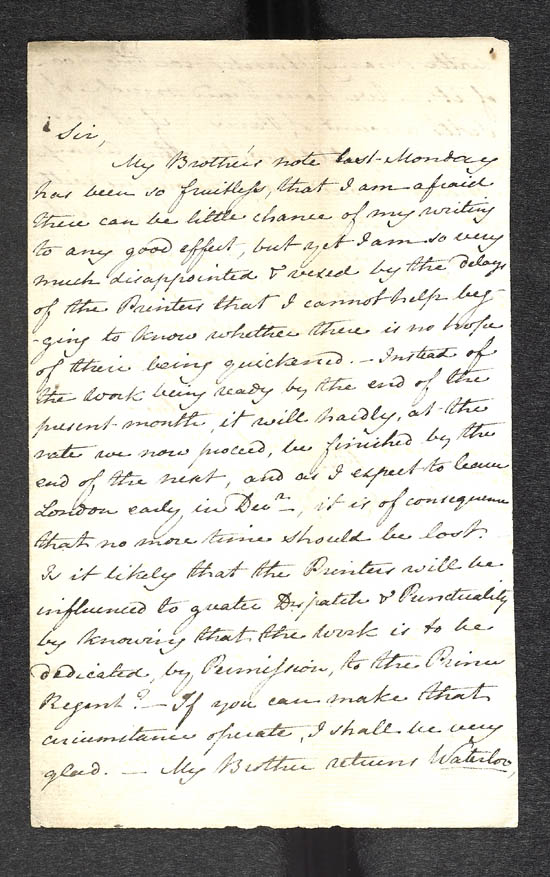 Sir,
My Brother's note last Monday
has been so fruitless, that I am afraid
there can be little chance of my writing
to any good effect, but yet I am so very
much disappointed & vexed by the delays
of the Printers that I cannot help beg-
-ging to know whether there is no hope
of their being quickened. — Instead of
the Work being ready by the end of the
present month, it will hardly, at the
rate we now proceed, be finished by the
end of the next, and as I expect to leave
London early in Decr., it is of consequence
that no more time should be lost.
Is it likely that the Printers will be
influenced to greater Dispatch & Punctuality
by knowing that the Work is to be
dedicated, by Permission, to the Prince
Regent? — If you can make that
circumstance operate, I shall be very
glad. — My Brother returns Waterloo,